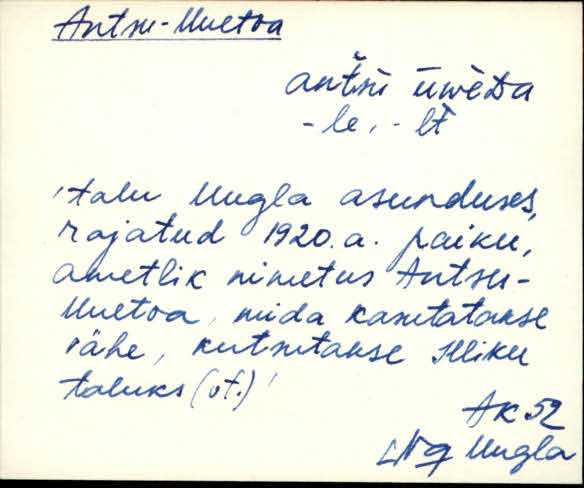 Antsu-Uuetoa
antsu ūwèDa
-le, -lt
'talu Uugla asunduses,
rajatud 1920.a. paiku,
ametlik nimetus Antsu-
Uuetoa, mida kasutatakse
vähe, kutsutakse Illiku
taluks (vt.)'
AK 52
Uugla